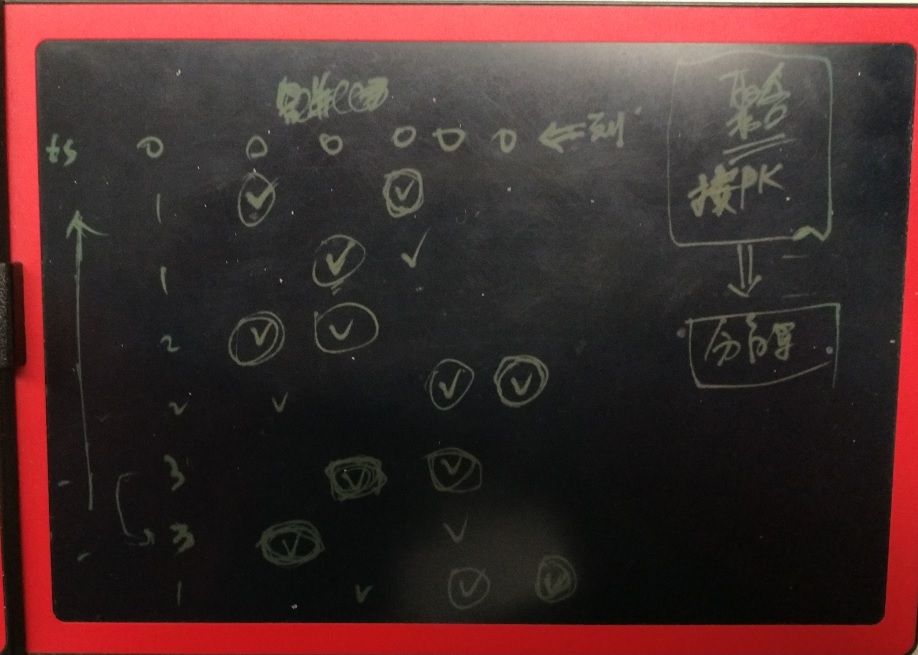 ts 0 0 0 0 0 0 ⇐列
1 ✓ ✓
1 ✓ ✓
2 ✓ ✓
2 ✓ ✓ ✓
3 ✓ ✓
3 ✓ ✓
1 ✓ ✓ ✓
聚合
按PK
⇓